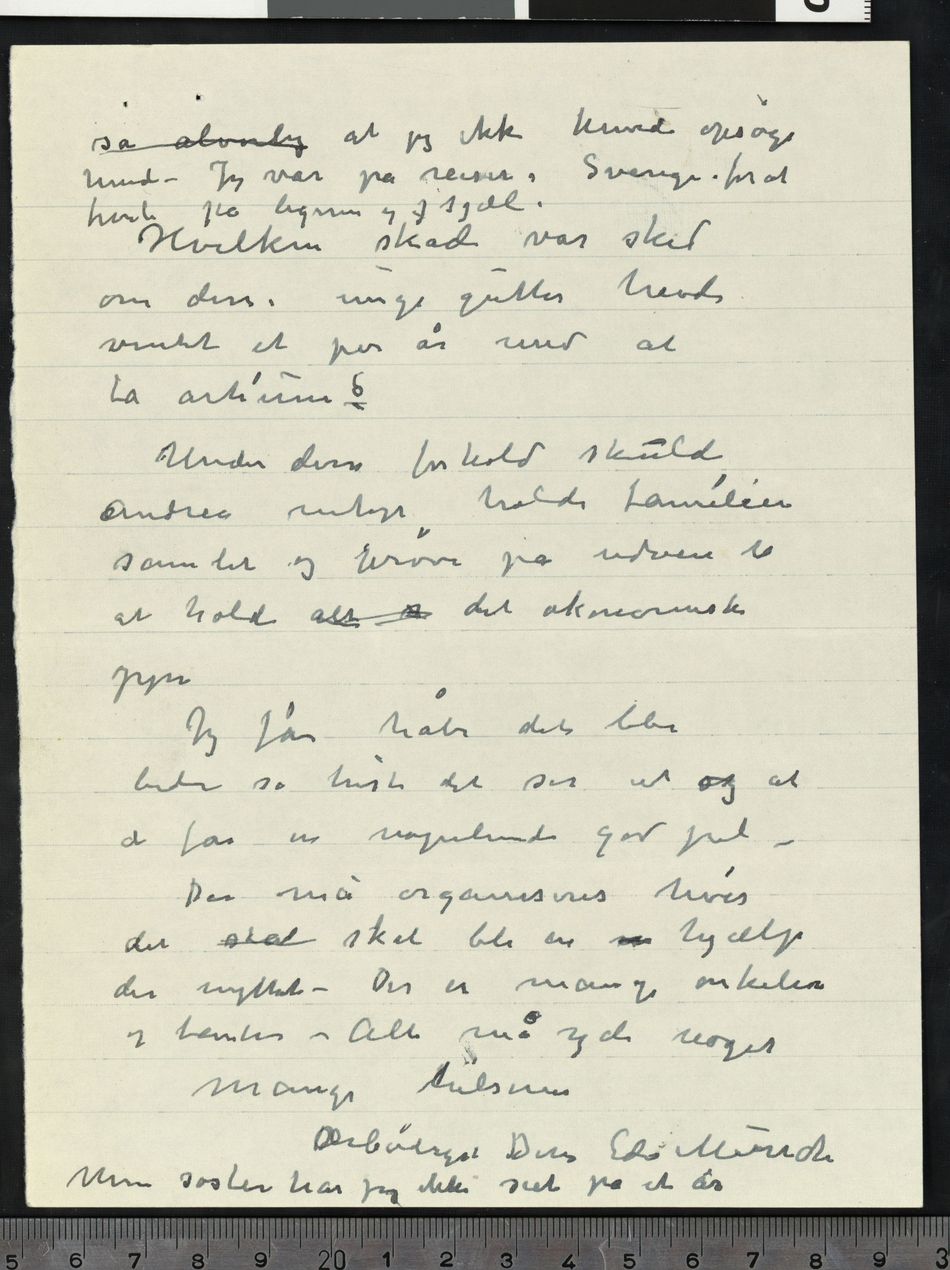 så alvorlig at jeg ikke kunde opsøge
hende – Jeg var på reiser i Sverige for at
hvile på legeme og sjæl.
Hvilken skade var sked
om disse unge gutter havde
ventet et par år med at
ta artium?
Under disse forhold skulde
Andrea meget holde familien
samlet og prøve på
at holde alt det økonomiske
oppe
Jeg får håbe det blir
bedre så trist det ser ut og at
de får en nogenlunde god jul –
Der må organiseres hvis
det skal skal bli en hjælp
der nytter – Der er mange onkeler
og tanter – Alle må yde noget
Mange hilsener
Ærbødigst Deres Edv Munch
Min søster har jeg ikke seet på et år